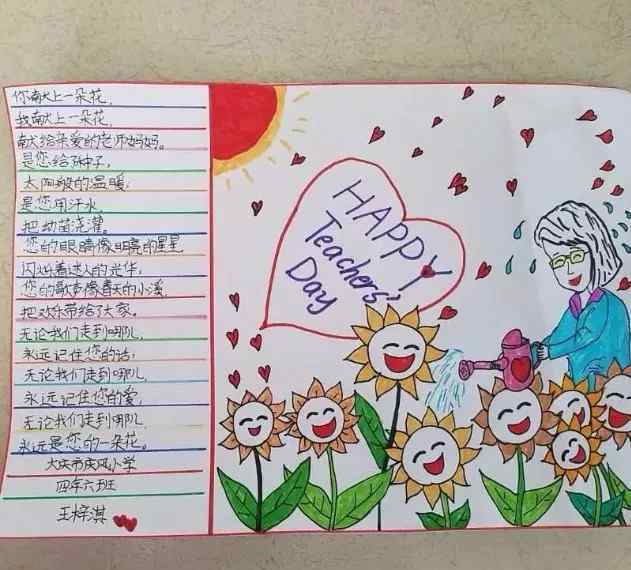 你献上一朵花,
我献上一朵花,
献给亲爱的老师妈妈。
是您给孩子,
太阳般的温暖;
是您用汗水,
把幼苗浇灌。
您的眼睛像明亮的星星
闪烁着迷人的光华;
您的歌声像春天的小溪,
把欢乐带给了大家。
无论我们走到哪儿,
永远记住您的话;
无论我们走到哪儿,
永远记住您的爱,
无论我们走到哪儿,
永远是您的一朵花。
大庆市庆风小学
四年六班
王梓淇
HAPPY
Teachers'
Day